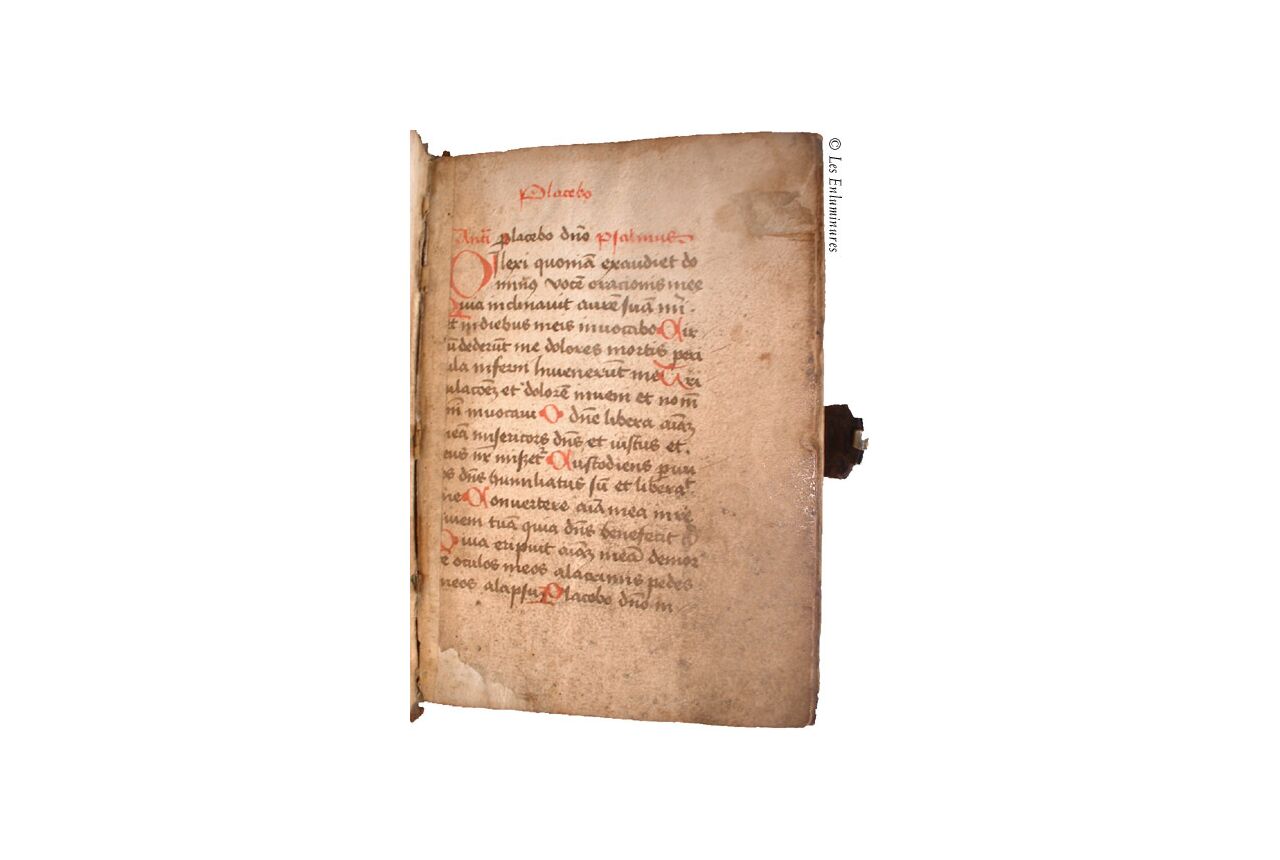 Placebo
Anti placebo dño psalmus
Dilexi quoniã exaudiet do
minꝯ vocẽ oracionis mee
Quia inclinavit aurẽ suã m̃i ·
et in diebus meis invocabo Cir
cũdederũt me dolores mortis peri
cula inferni invenerũt me Tri
bulacõez et dolorẽ inveni et nom̃
dñi invocavi O dñe libera aĩaz
meã misericors dñs et iustus et
deus nr̃ mis̃et᷑ Custodiens parvu
los dñs humiliatus sũ et liberat
me Convertere aĩa mea in re
quiem tuã quia dñs benefecit t
Quia eripuit aĩaz meã de mor
te oculos meos a lacrimis pedes
meos a lapsu Placebo dño in
© Les Enluminures